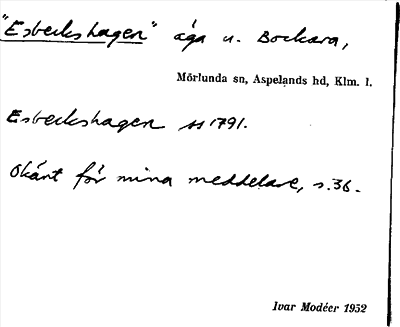 "Esbeckshagen" äga u. Bockara,
Mörlunda sn, Aspelands hd, Klm. l.
Esbeckshagen ss 1791.
Okänt för mina meddelare, s. 36.
Ivar Modéer 1952